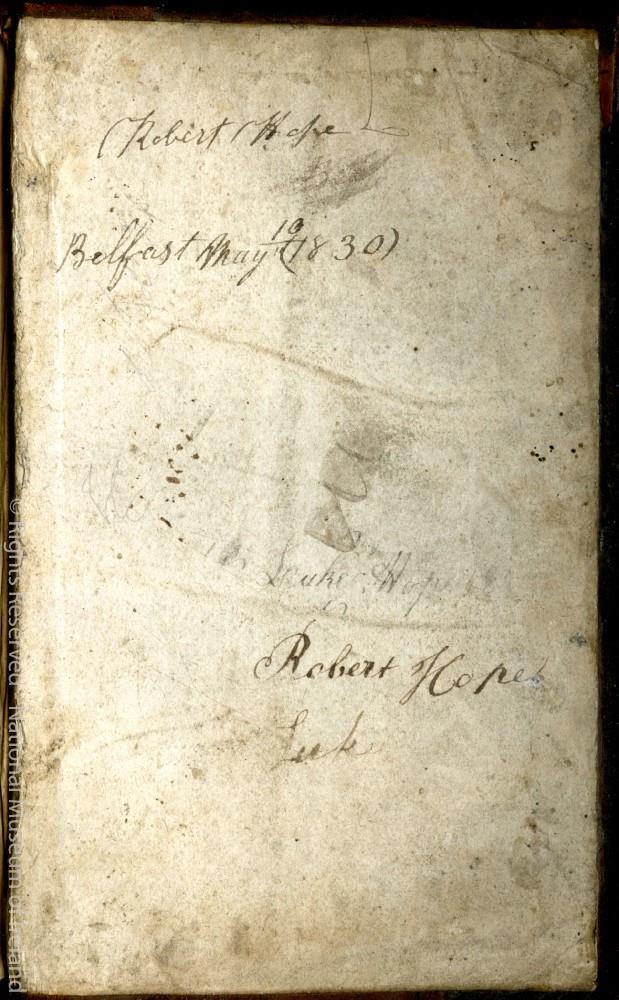 Robert Hope
Belfast May 19 (1830)
Luke Hope
Robert Hope
Luk
© Rights Reserved - National Museum of Ireland